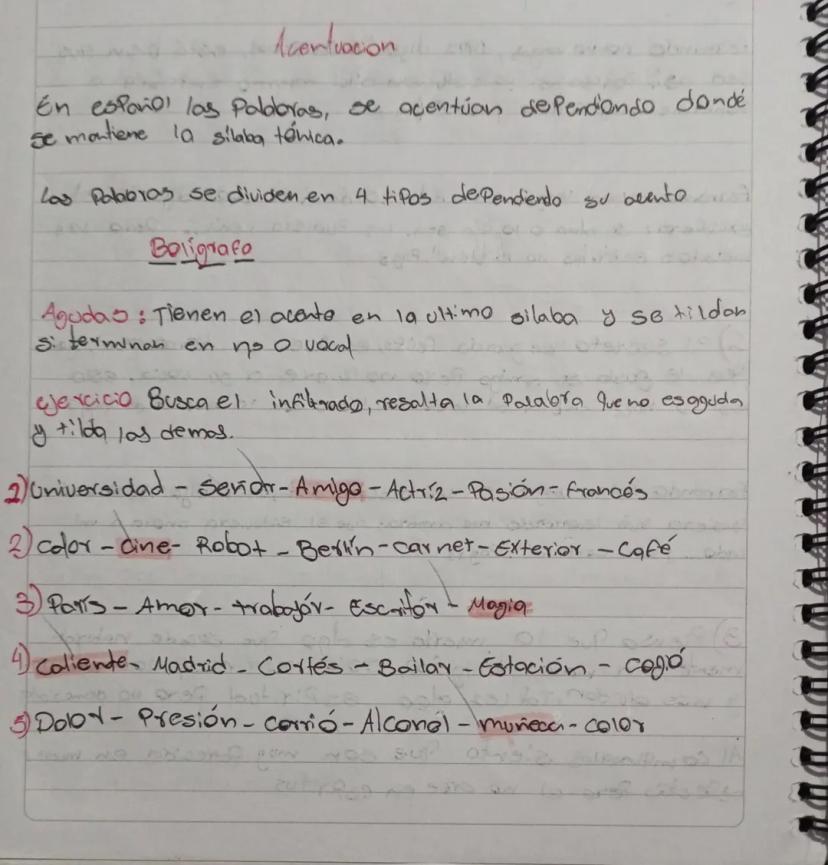 Acentuacion
En español las Palabras, se acentúan dependiendo dondé
se mantiene la sílaba tónica.
Las Palabras se dividen en 4 tipos dependiendo su acento
Bolígrafo
Agudas: Tienen el acento en la ultimo silaba y se tildan
si terminan en n s o vocal
ejercicio Busca el infiltrado, resalta la Palabra que no es aguda
y tilda las demas.
1) Universidad - Señor - Amigo - Actríz - Pasión - francés
2) Color - Cine - Robot - Berlín - carnet - Exterior - Café
3) París - Amor - trabajór - Escritór - Magia
4) Caliente - Madrid - Cortés - Bailar - Estación - Cogió
5) Dolor - Presión - Corrió - Alcohól - muñeca - color